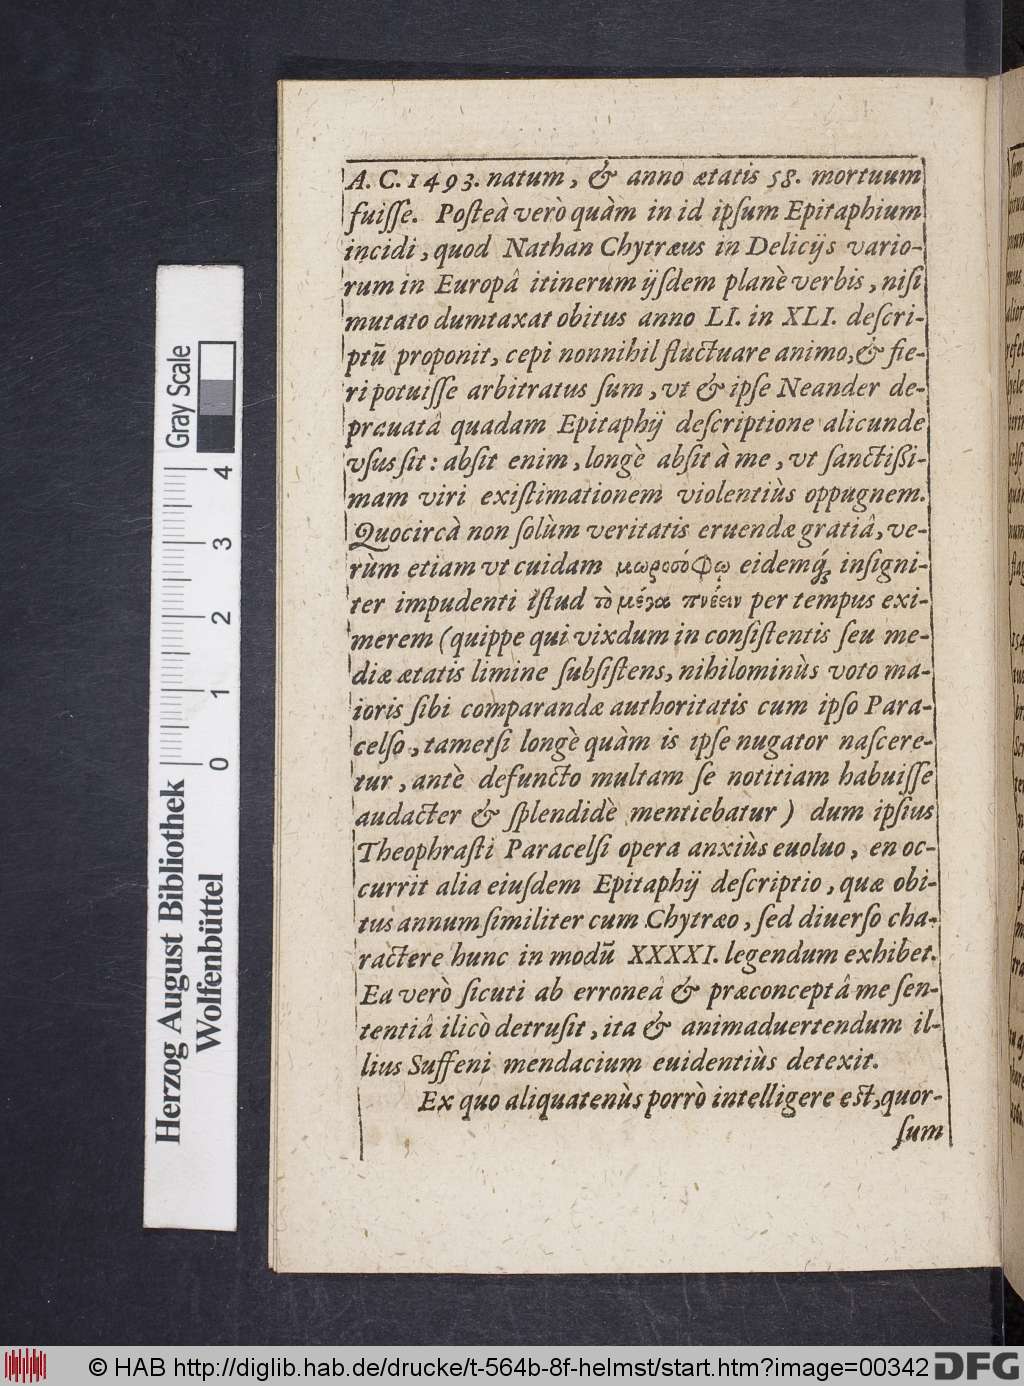 A. C. 1493. natum, & anno ætatis 58. mortuum
fuiſſe. Poſteà verò quàm in id ipſum Epitaphium
incidi, quod Nathan Chytræus in Delicijs vario-
rum in Europâ itinerum ijſdem planè verbis, niſi
mutato dumtaxat obitus anno LI. in XLI. deſcri-
ptū proponit, cepi nonnihil fluctuare animo, & fie-
ri potuiſſe arbitratus ſum, vt & ipſe Neander de-
prauatâ quadam Epitaphij deſcriptione alicunde
vſus ſit: abſit enim, longè abſit à me, vt ſanctißi-
mam viri exiſtimationem violentiùs oppugnem.
Quocircà non ſolùm veritatis eruendæ gratiâ, ve-
rùm etiam vt cuidam μωροσόφῳ eidemq́; inſigni-
ter impudenti iſtud τὸ μέγα πνέειν per tempus exi-
merem (quippe qui vixdum in conſiſtentis ſeu me-
diæ ætatis limine ſubſiſtens, nihilominùs voto ma-
ioris ſibi comparandæ authoritatis cum ipſo Para-
celſo, tametſi longè quàm is ipſe nugator naſcere-
tur, antè defuncto multam ſe notitiam habuiſſe
audacter & ſplendidè mentiebatur) dum ipſius
Theophraſti Paracelſi opera anxiùs euoluo, en oc-
currit alia eiuſdem Epitaphij deſcriptio, quæ obi-
tus annum ſimiliter cum Chytræo, ſed diuerſo cha-
ractere hunc in modū XXXXI. legendum exhibet.
Ea verò ſicuti ab erroneâ & præconceptâ me ſen-
tentiâ ilicò detruſit, ita & animaduertendum il-
lius Suffeni mendacium euidentiùs detexit.
Ex quo aliquatenùs porrò intelligere eſt, quor-
ſum
Herzog August Bibliothek
Wolfenbüttel
Gray Scale
0 1 2 3 4
© HAB http://diglib.hab.de/drucke/t-564b-8f-helmst/start.htm?image=00342
DFG